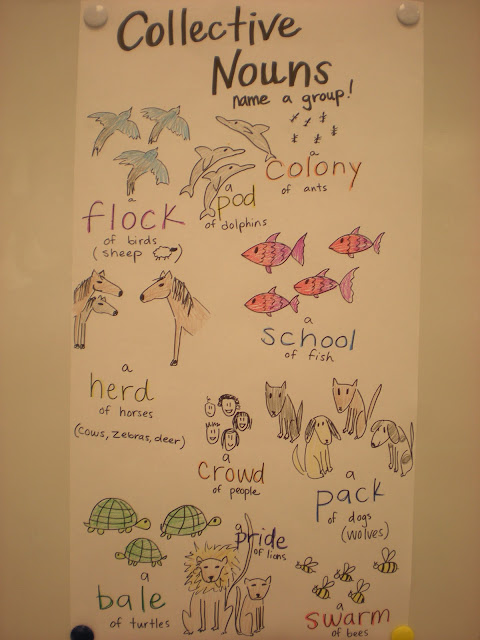 Collective
Nouns
name a group!
a
flock
of birds
(sheep)
a
pod
of dolphins
a
colony
of ants
a
school
of fish
a
herd
of horses
(cows, zebras, deer)
a
crowd
of people
a
pack
of dogs
(wolves)
a
bale
of turtles
a
pride
of lions
a
swarm
of bees